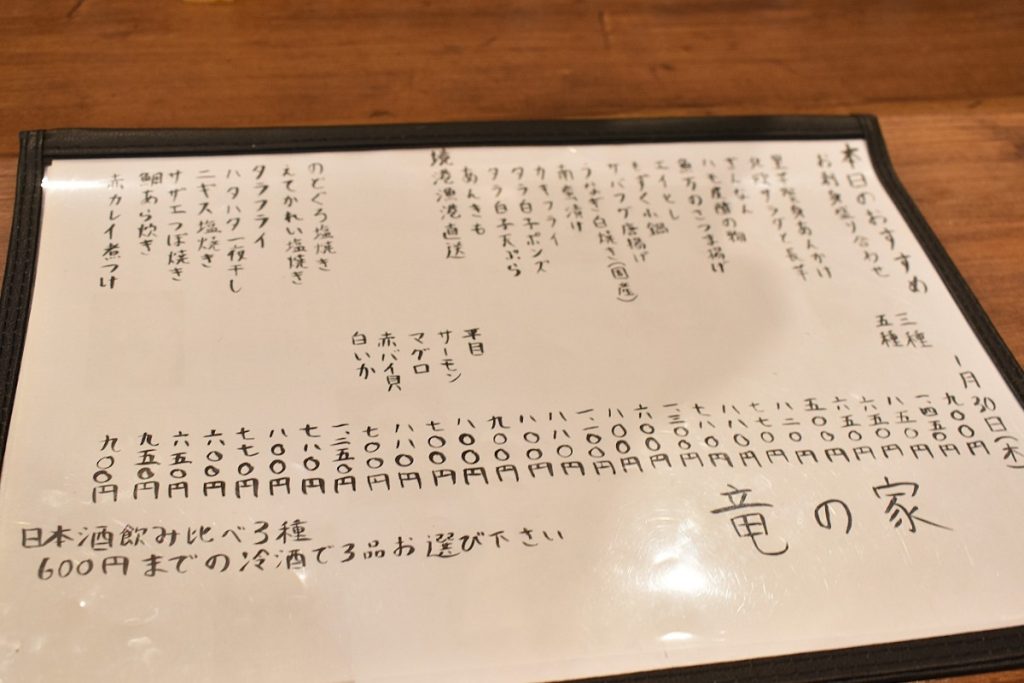 本日のおすすめ
1月30日(木)
お刺身盛り合わせ
三種
五種
あんかけ
ぎんなん
の物
魚万のさつま揚げ
エイヒレ
もずく小鍋
サバフグ唐揚げ
うなぎ白焼き(国産)
カキフライ
タラ白子ポンズ
タラ白子天ぷら
あんきも
境港漁港直送
平目
サーモン
マグロ
赤バイ貝
白いか
のどぐろ塩焼き
えてかれい塩焼き
タラフライ
ハタハタ一夜干し
ニギス塩焼き
サザエつぼ焼き
鯛あら炊き
赤カレイ煮つけ
九〇〇円
一、四五〇円
八五〇円
六五〇円
六五〇円
五〇〇円
八二〇円
七七〇円
八八〇円
七八〇円
一、三〇〇円
六〇〇円
八〇〇円
八八〇円
八〇〇円
九〇〇円
八〇〇円
七〇〇円
八八〇円
七〇〇円
一、二五〇円
七八〇円
八〇〇円
七七〇円
六〇〇円
六五〇円
九五〇円
九〇〇円
竜の家
日本酒飲み比べ3種
600円までの冷酒で3品お選び下さい